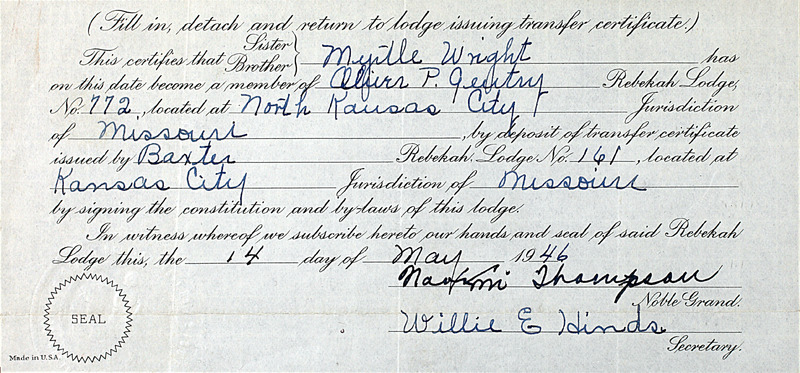 (Fill in, detach and return to lodge issuing transfer certificate.)
This certifies that Sister Brother } Myrtle Wright has
on this date become a member of Oliver P. Gentry Rebekah Lodge,
No. 772, located at North Kansas City Jurisdiction
of Missouri, by deposit of transfer certificate
issued by Baxter Rebekah Lodge No. 161, located at
Kansas City Jurisdiction of Missouri
by signing the constitution and by-laws of this lodge.
In witness whereof we subscribe hereto our hands and seal of said Rebekah
Lodge this, the 14 day of May 1946
Naomi Thompson
Noble Grand.
Willie E Hinds
Secretary.
SEAL
Made in U.S.A.